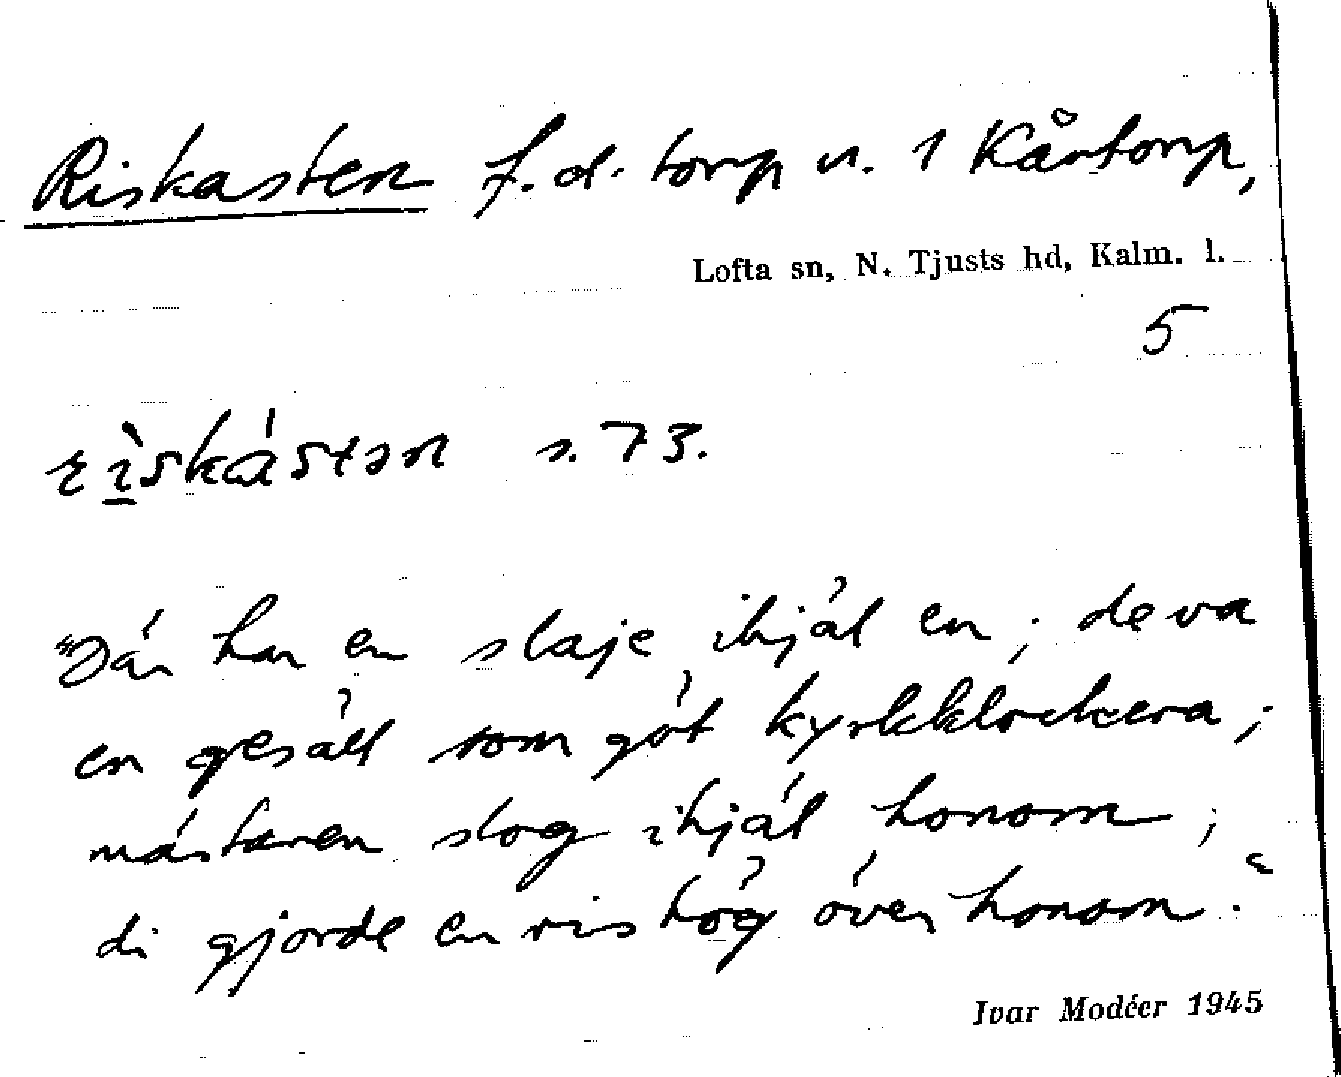 Riskasten f.d. torp u. 1 Kårtorp,
Lofta sn, N. Tjusts hd, Kalm. l.
5
rìskástən s. 73.
"Där har en slaje ihjäl en; de va
en gesäll som göt kyrkklockera;
mästaren slog ihjäl honom;
di gjorde en rishög över honom."
Ivar Modéer 1945